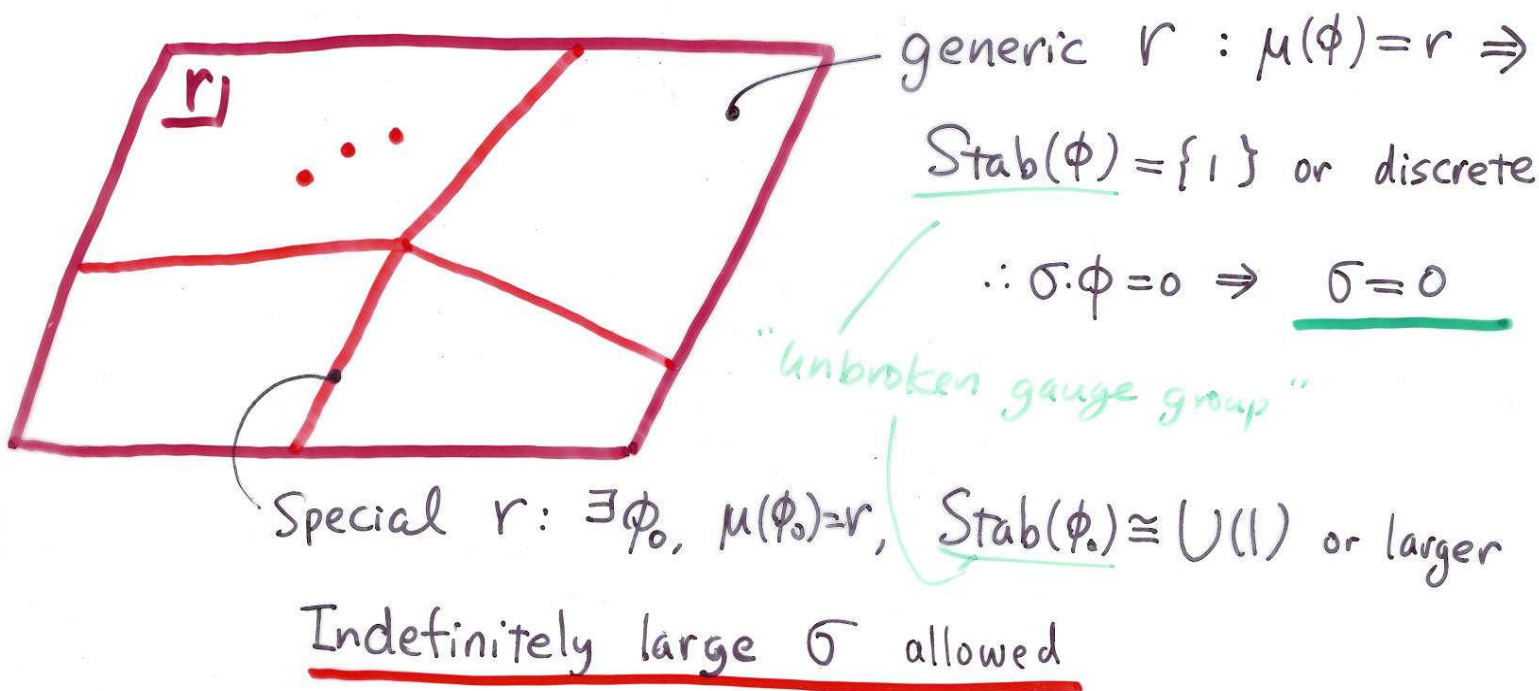 r
generic r : μ(φ) = r ⇒
Stab(φ) = {1} or discrete
∴ σ·φ = 0 ⇒ σ = 0
"unbroken gauge group"
Special r: ∃φ₀, μ(φ₀)=r, Stab(φ₀) ≅ U(1) or larger
Indefinitely large σ allowed